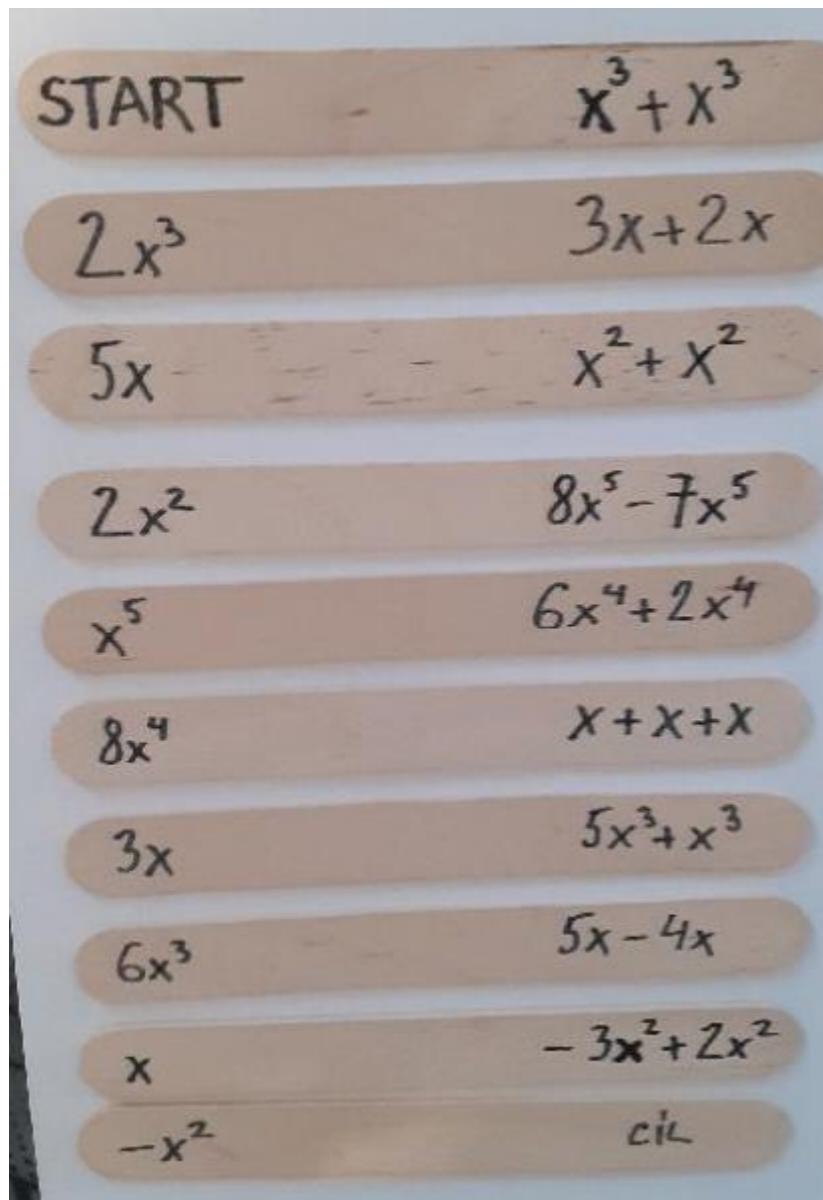 START x³ + x³
2x³ 3x + 2x
5x x² + x²
2x² 8x⁵ - 7x⁵
x⁵ 6x⁴ + 2x⁴
8x⁴ x + x + x
3x 5x³ + x³
6x³ 5x - 4x
x - 3x² + 2x²
-x² cíl